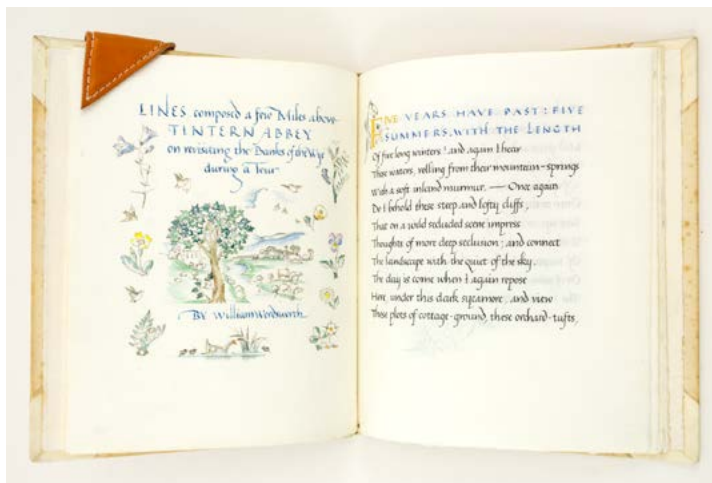 LINES composed a few Miles above
TINTERN ABBEY
on revisiting the Banks of the Wye
during a Tour
BY William Wordsworth
FIVE YEARS HAVE PAST; FIVE
SUMMERS, WITH THE LENGTH
Of five long winters! and again I hear
These waters, rolling from their mountain-springs
With a soft inland murmur. — Once again
Do I behold these steep and lofty cliffs,
That on a wild secluded scene impress
Thoughts of more deep seclusion; and connect
The landscape with the quiet of the sky.
The day is come when I again repose
Here, under this dark sycamore, and view
These plots of cottage-ground, these orchard-tufts,